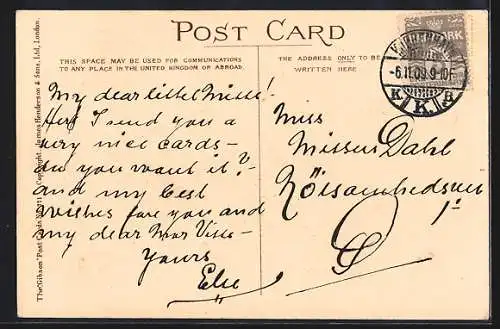 POST CARD
THIS SPACE MAY BE USED FOR COMMUNICATIONS
TO ANY PLACE IN THE UNITED KINGDOM OR ABROAD.
THE ADDRESS ONLY TO BE
WRITTEN HERE
-6.11.09.9-10F
K.K.B
RK
My dear littel Misse!
Her I send you a
very nice cards-
do you want it?-
and my best
wishes fore you and
my dear
Yours
Else
Miss
Missen Dahl
The "Gibson" Post Cards Copyright James Henderson & Sons, Ltd., London.